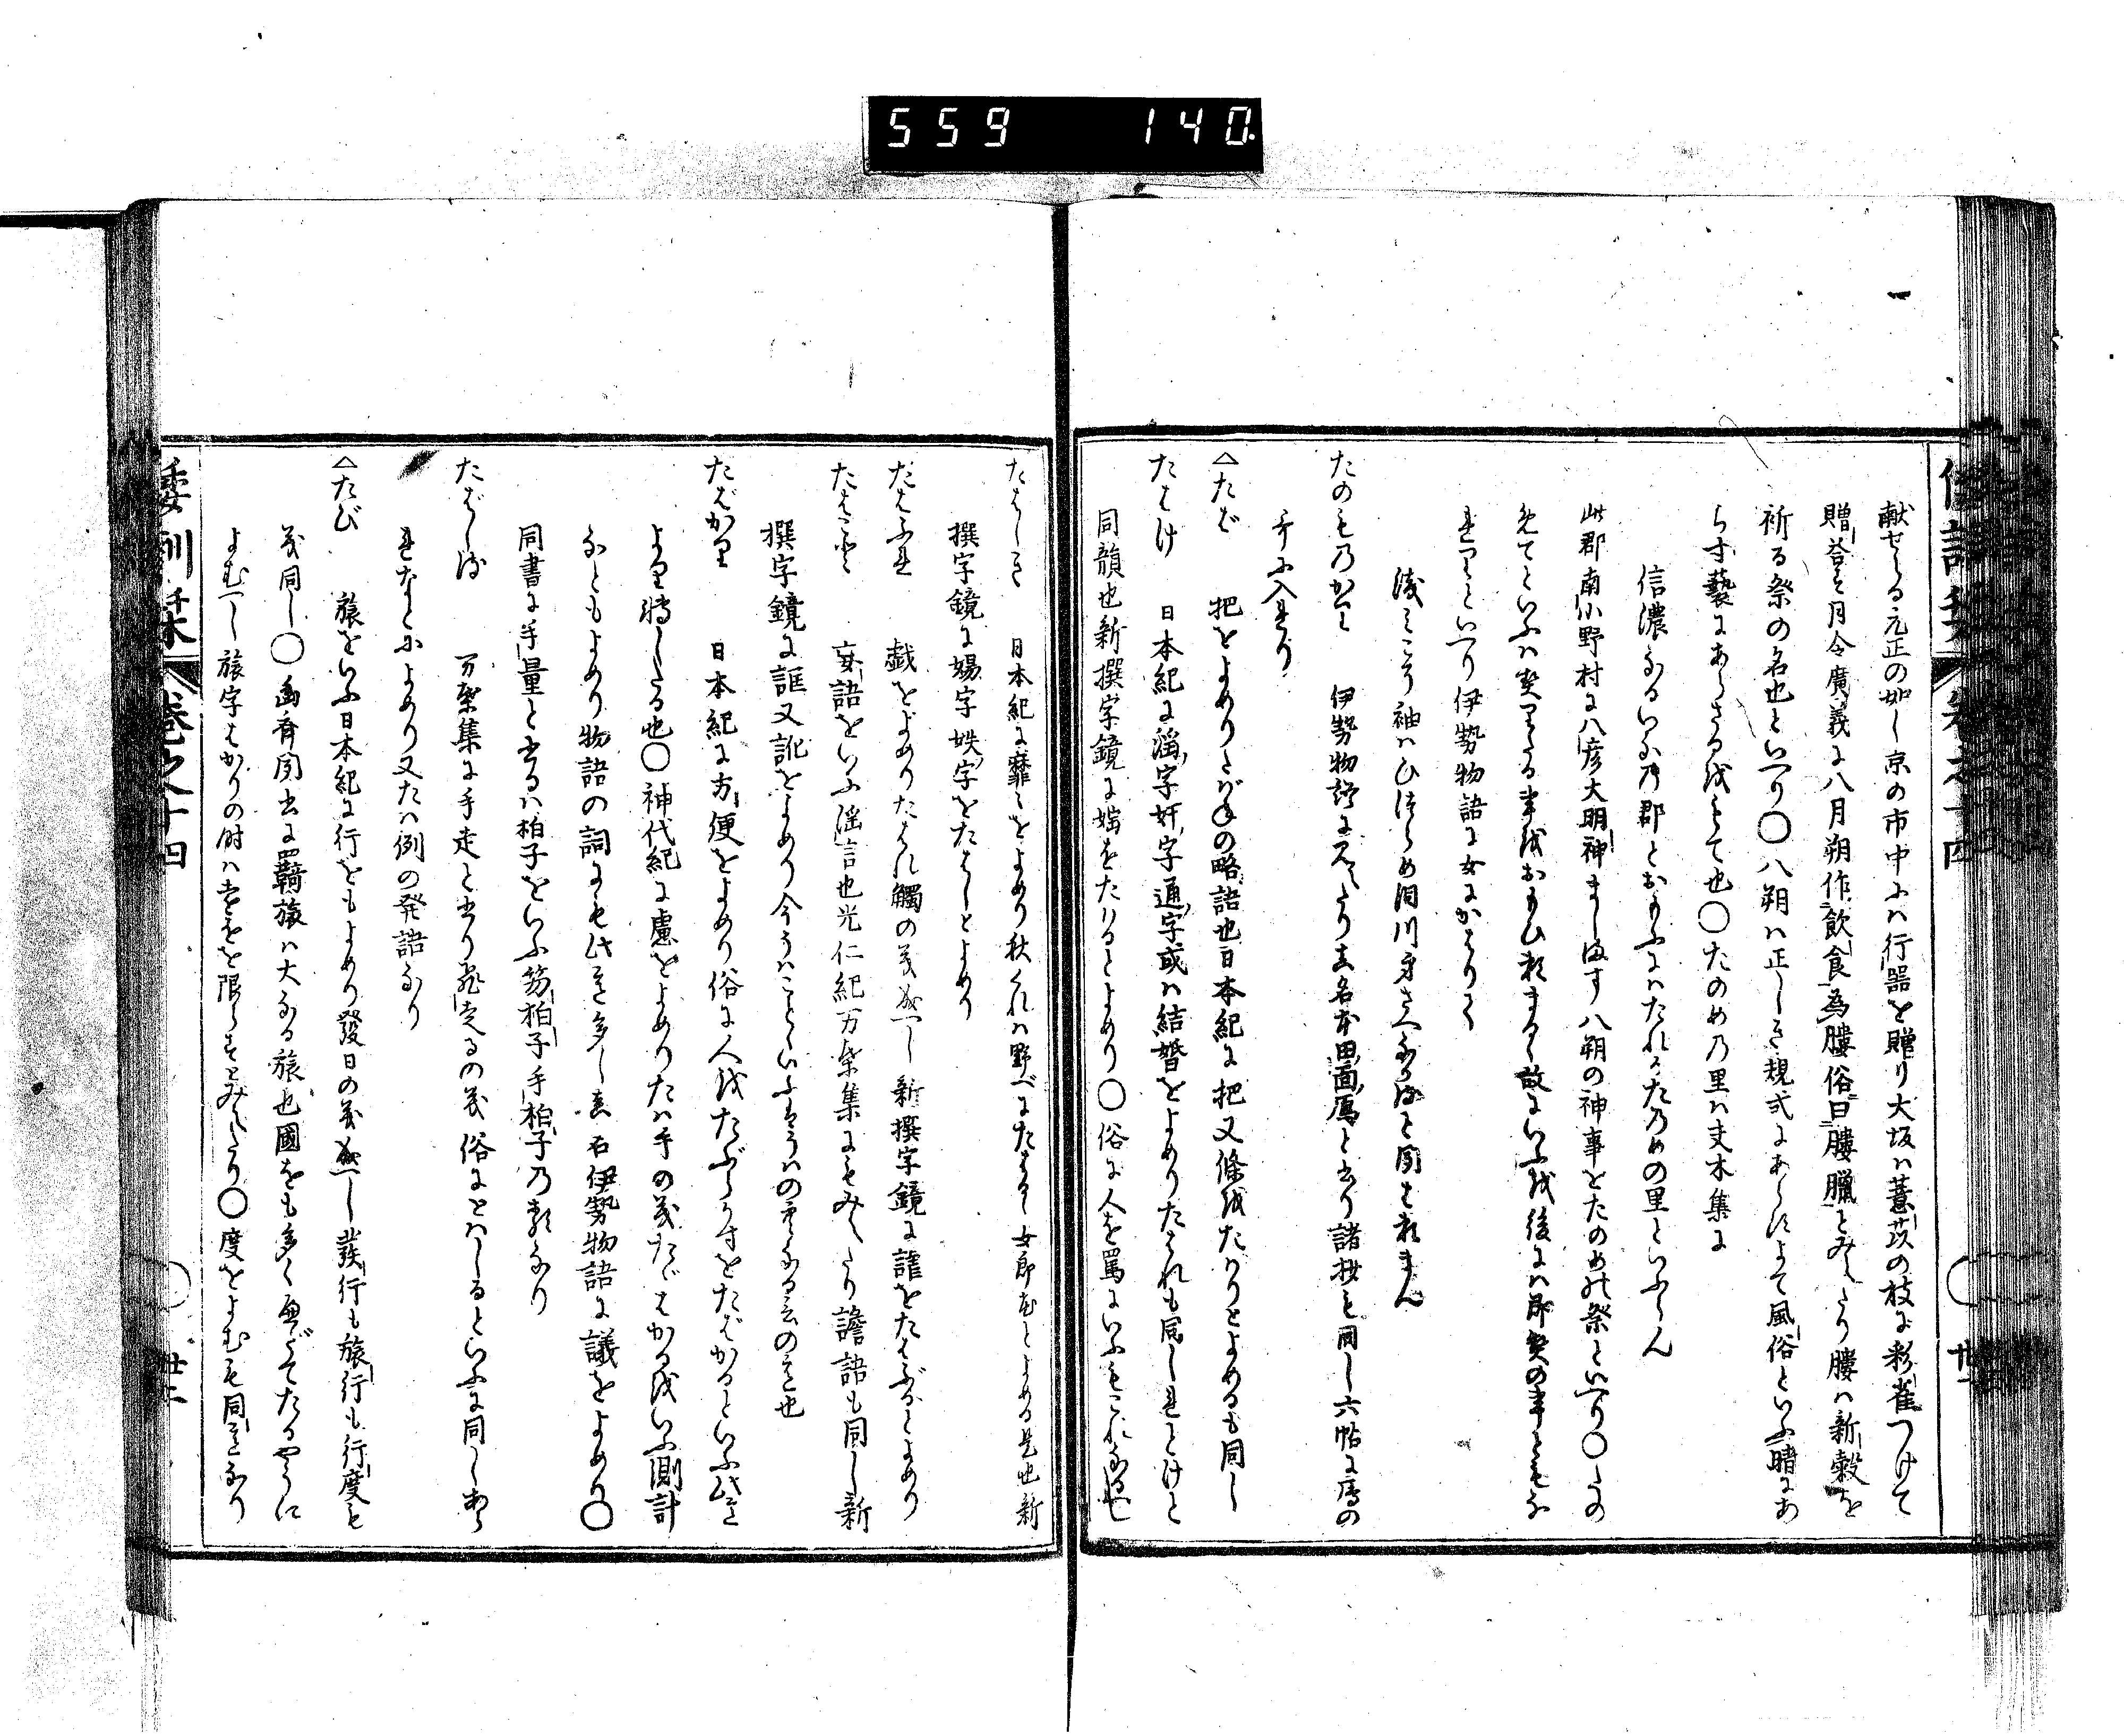 559 140
献せる元正の如し京の市中にハ行器を贈り大坂ハ薏苡の枝に彩雀つけて
贈答す月令廣義に八月朔作飲食為膢俗曰膢臘とみえたり膢ハ新穀を
祈る祭の名也といへり○八朔ハ正しき規式にあらによて風俗といふ晴にあ
らす褻にあらさるをもて也○たのめの里ハ夫木集に
信濃なるいなの郡とおもふにハたれかたのめの里といふらん
此郡南小野村に八彦大明神まします八朔の神事をたのめの祭といへり○たの
めてといふハ契りたる事をおもひ頼まるゝ故にいふを後にハ即契の事ともな
れりといへり伊勢物語に女にかはりて
浅みこそ袖ハひつらめ泪川身さへなかると聞はたのまん
たのものかり 伊勢物語にみえたり真名本田面鴈と書り諸抄も同し六帖に鴈の
部に入れり
△たば 把をよめりたばねの略語也日本紀に把又條をたハりとよめるも同し
たはけ 日本紀に淫字奸字通字或ハ結婚をよめりたはれも同しれとけと
同韻也新撰字鏡に婬をたハるとよめり○俗に人を罵にいふもこれなるへし
たはしき 日本紀に靡〻をよめり秋くれハ野べにたはるゝ女郎花とよめる是也新
撰字鏡に婸字妷字をたはしとよめり
たはふれ 戯をよめりたはれ觸の義なへし新撰字鏡に謔をたはふるとよめり
たはこと 妄語をいふ淫言也光仁紀万葉集にもみえたり譫語も同し新
撰字鏡に誑又訛をよめり今うハことといふもうハの空なる言の意也
たばかり 日本紀に方便をよめり俗に人をたぶらかすをたばかるといふ此意
より轉したる也○神代紀に慮をよめりたハ手の義たばかるをいふ測計
なともよめり物語の詞にも此意多し真名伊勢物語に議をよめり○
同書に手量と書るハ柏子をいふ笏柏子手柏子の類なり
たばしる 万葉集に手走と書り飛走るの義俗にとハしるといふに同しあら
れなとによめり又たハ例の発語なり
△たび 旅をいふ日本紀に行をもよめり發日の義なへし發行も旅行も行度も
義同し○幽斎聞書に羈旅ハ大なる旅也國をも多く西東へたてたるやうに
よむへし旅字はかりの時ハ遠きを限らすとみえたり○度をよむも同意なり
倭訓栞 巻之十四 廿二